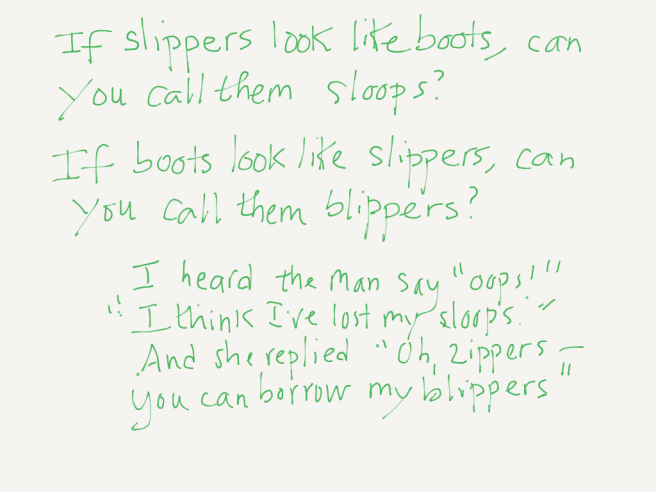 If slippers look like boots, can
you call them sloops?
If boots look like slippers, can
you call them blippers?
I heard the man say "oops!"
"I think I've lost my sloops."
And she replied "Oh, zippers –
you can borrow my blippers"